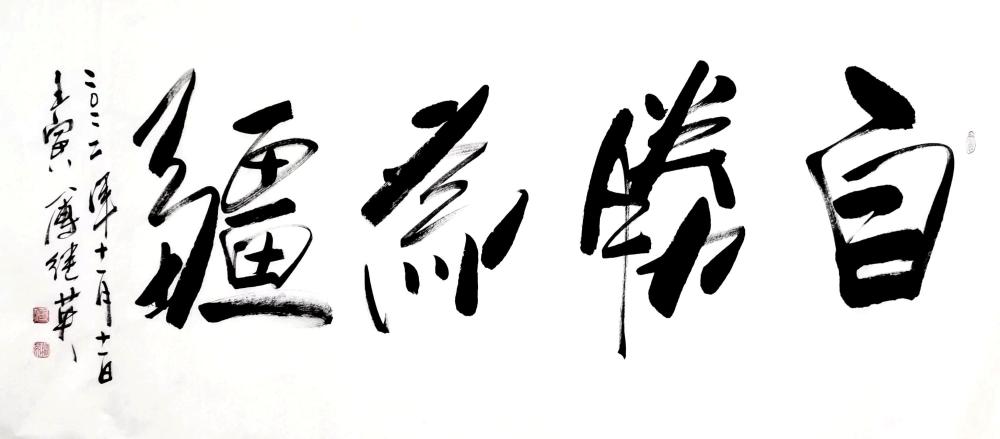 自勝為疆
二〇二二年十一月十一日
壬寅傅继英